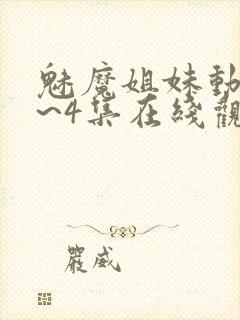 魅魔姐妹動
~4集在线觀
嚴威